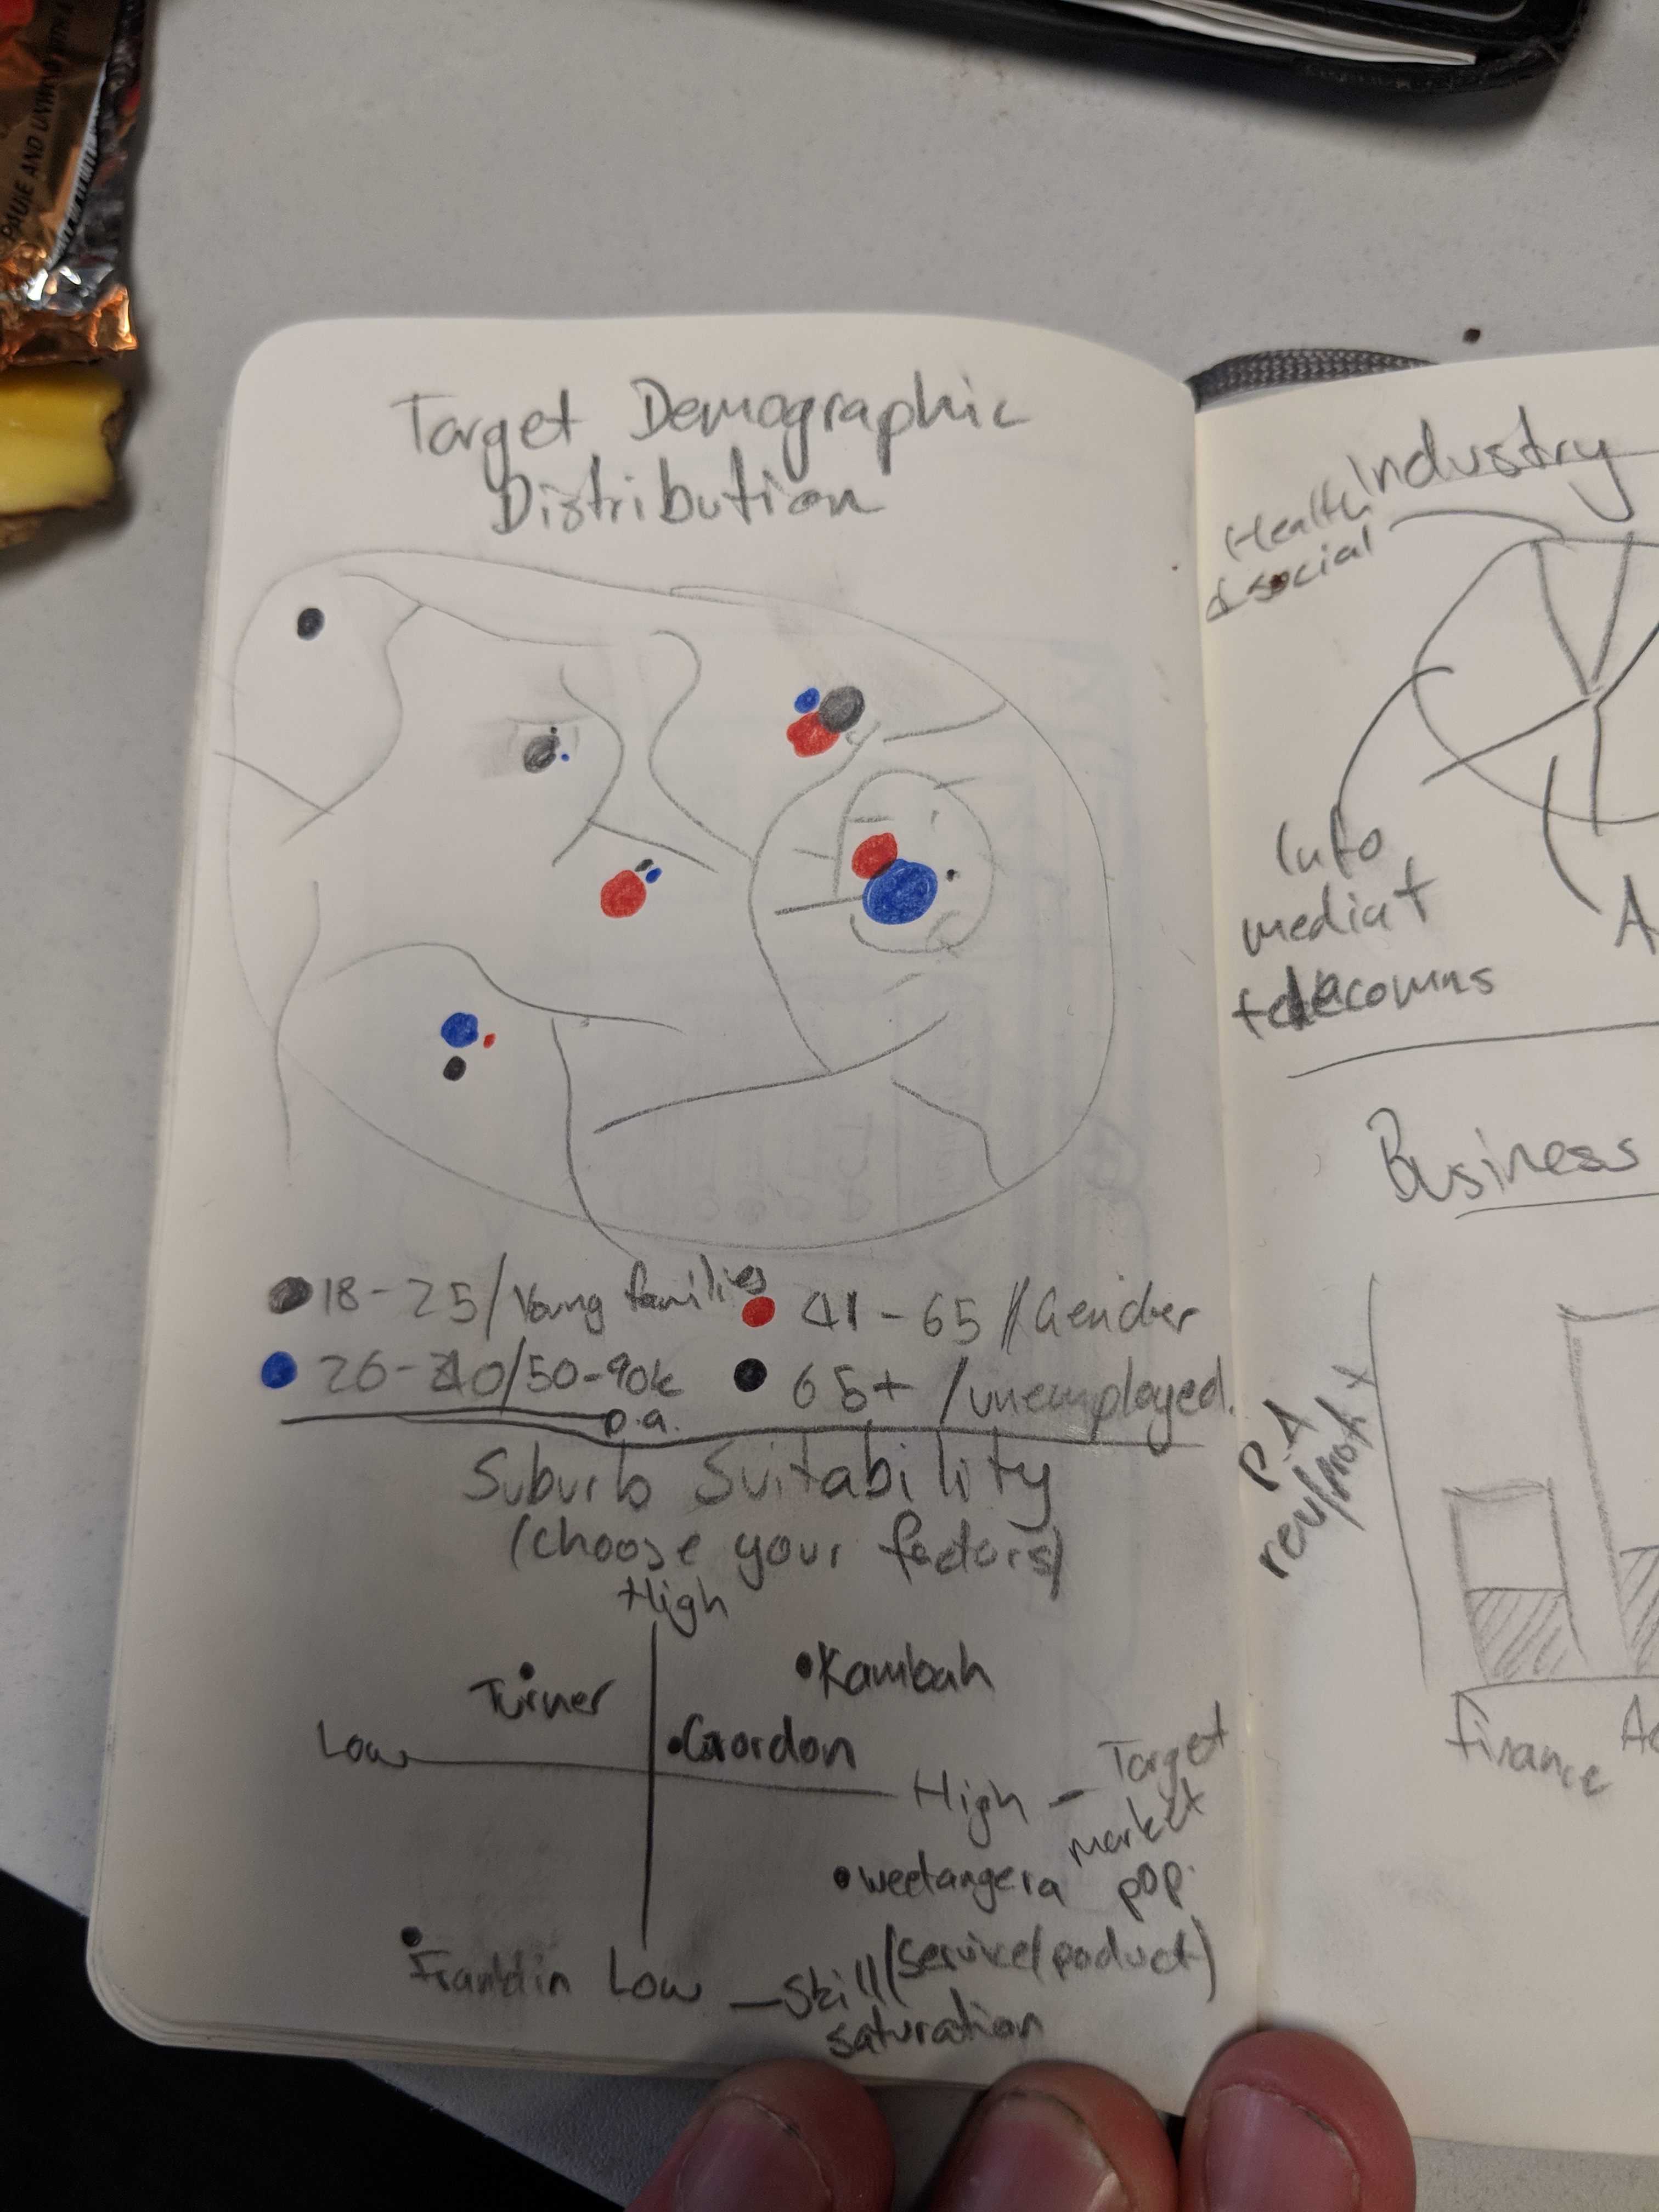 PAULIE AND
Target Demographic
Distribution
18-25/Young families
41-65//Gender
26-40/50-90k
p.a.
65+/unemployed.
Suburb Suitability
(choose your factors)
High
Turner
Kambah
Low
Gordon
High - Target
market
pop.
weetangera
Franklin
Low - Skill (service/product)
saturation
Industry
Health
& social
Info
media +
telecomms
A
Business
P.A
rev/
Finance